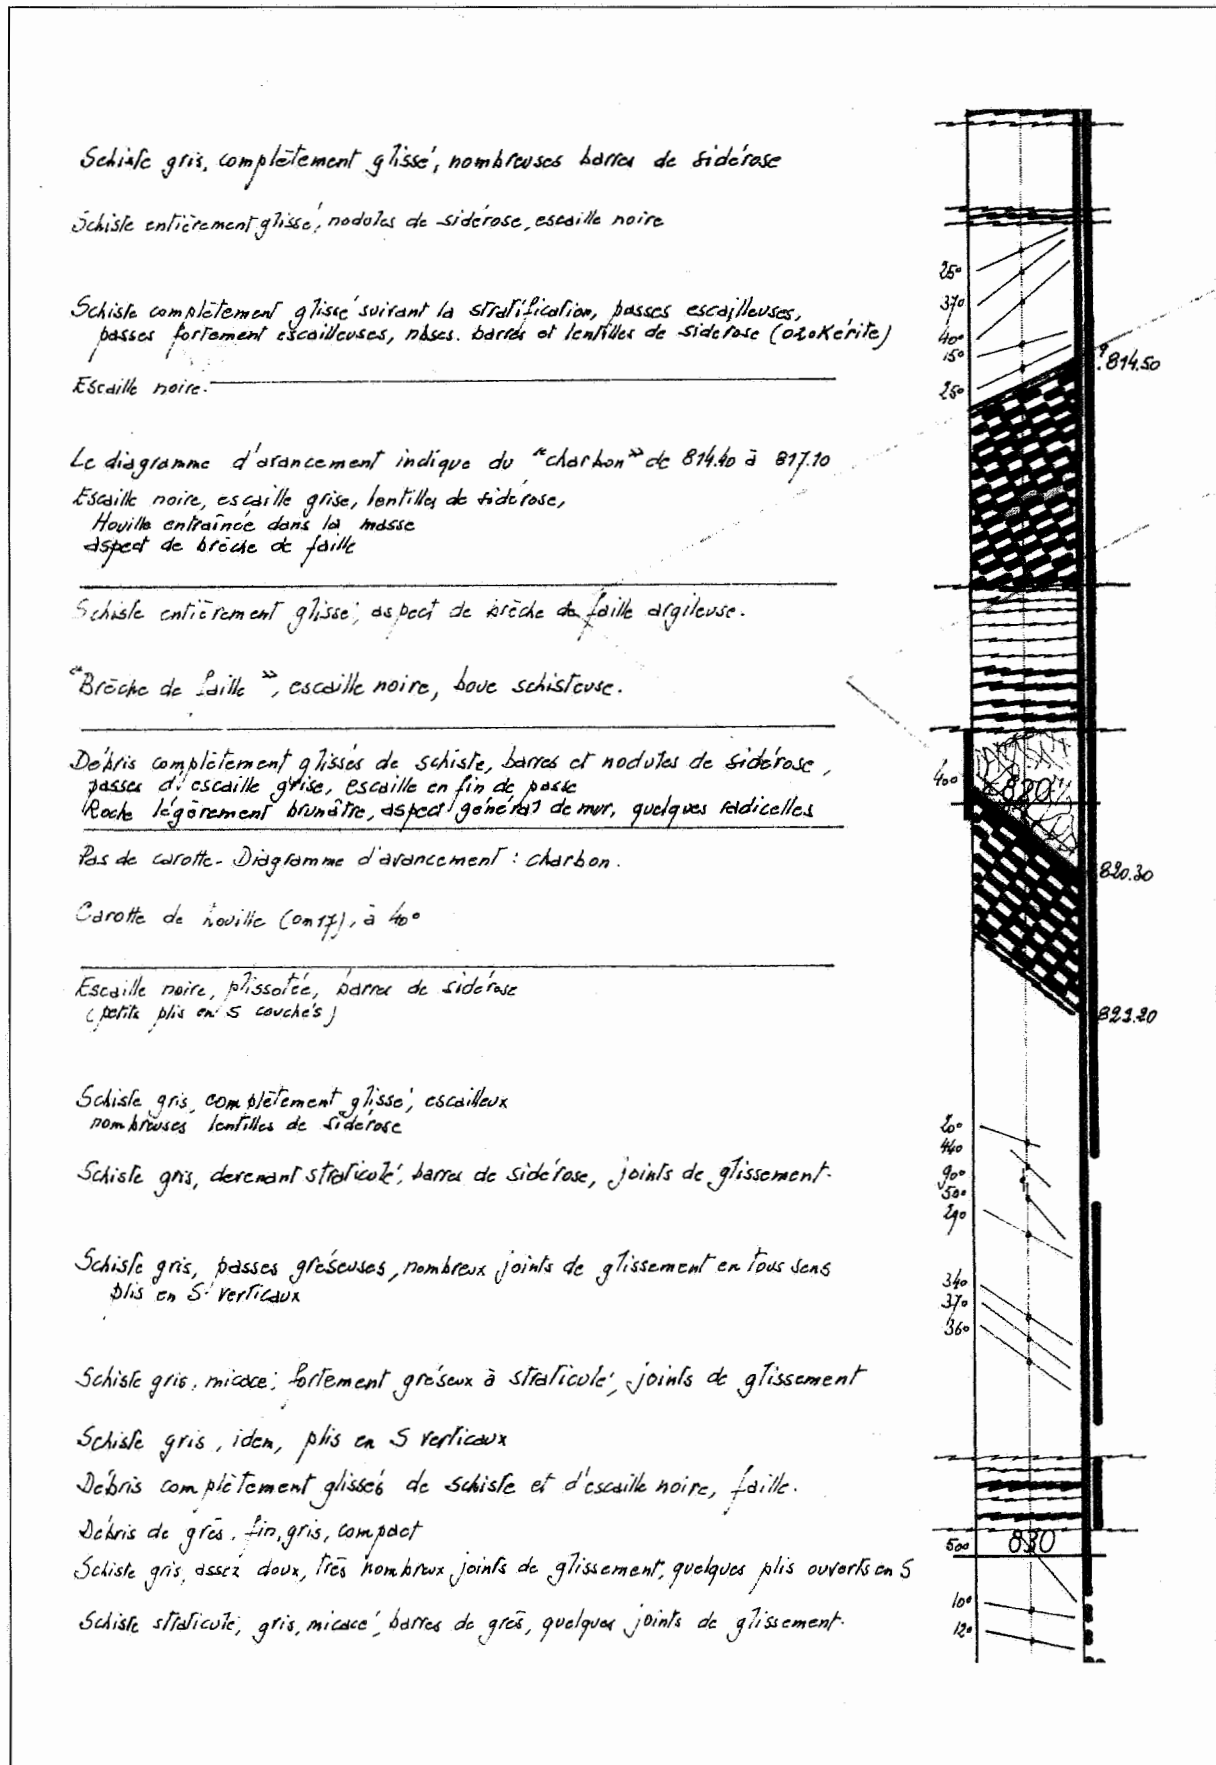 Schiste gris, complètement glissé, nombreuses barres de sidérose
Schiste entièrement glissé, nodules de sidérose, escaille noire
25°
37°
Schiste complètement glissé suivant la stratification, passes escailleuses,
passes fortement escailleuses, nbses. barres et lentilles de sidérose (ozokérite)
40°
15°
? 814.50
Escaille noire.
25°
Le diagramme d'avancement indique du "charbon" de 814.40 à 817.10
Escaille noire, escaille grise, lentilles de sidérose,
Houille entraînée dans la masse
aspect de brèche de faille
Schiste entièrement glissé, aspect de brèche de faille argileuse.
"Brèche de faille", escaille noire, boue schisteuse.
Débris complètement glissés de schiste, barres et nodules de sidérose,
passes d'escaille grise, escaille en fin de passe
40°
820
Roche légèrement brunâtre, aspect général de mur, quelques radicelles
Pas de carotte - Diagramme d'avancement : charbon.
820.30
Carotte de houille (0m17), à 40°
Escaille noire, plissotée, barres de sidérose
(petits plis en S couchés)
821.20
Schiste gris, complètement glissé, escailleux
nombreuses lentilles de sidérose
20°
44°
Schiste gris, devenant straticulé, barres de sidérose, joints de glissement.
90°
50°
29°
Schiste gris, passes gréseuses, nombreux joints de glissement en tous sens
plis en S verticaux
34°
37°
36°
Schiste gris, micacé, fortement gréseux à straticulé, joints de glissement
Schiste gris, idem, plis en S verticaux
Débris complètement glissés de schiste et d'escaille noire, faille.
Débris de grès, fin, gris, compact
50°
830
Schiste gris, assez doux, très nombreux joints de glissement, quelques plis ouverts en S
10°
Schiste straticulé, gris, micacé, barres de grès, quelques joints de glissement.
12°